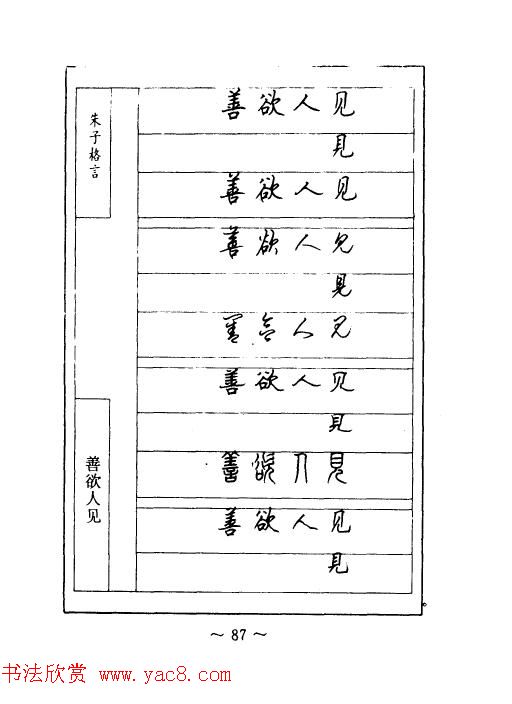 朱子格言
善欲人见
善欲人见
見
善欲人见
善欲人见
見
善欲人见
善欲人见
見
善欲人見
善欲人见
見
～ 87 ～
书法欣赏 www.yac8.com